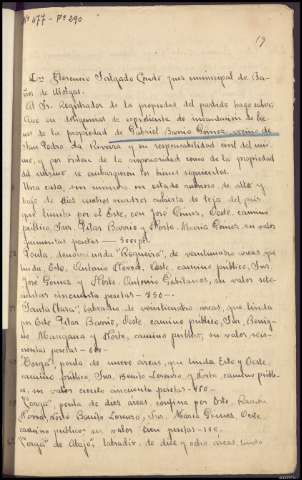 Nº 477 - Pº 290
17
Don Florencio Salgado Conde juez municipal de Ba-
ños de Molgas.
Al Sr. Registrador de la propiedad del partido hago saber:
Que en diligencias de expediente de incautacion de bie-
nes de la propiedad de Gabriel Barrio Gomez, vecino de
San Pedro da Ribeira y su responsabilidad civil del mis-
mo, y por orden de la superioridad como de la propiedad
del mismo se embargaron los bienes siguientes.
Una casa, sin numero en estado ruinoso, de alto y
bajo de diez cuatro madros cubierta de teja del pais
que limita por el Este, con José Gomez, Oeste, camino
público, Sur, Pilar Barrio y Norte, Maria Gomez, su valor
quinientas pesetas — 500 ptas.
Touta, denominada "Requeiro", de veintiuna areas, que
linda, Este, Antonio Nóvoa, Oeste, camino público, Sur,
José Gomez y Norte Antonio Gabitanes, su valor sete-
cientas cincuenta pesetas - 750 -
"Santa Clara", labradio de veintiuna areas, que linda
por Este Pilar Barrio, Oeste camino público, Sur Benig-
no Mangana y Norte, camino público, su valor seis-
cientas pesetas - 600 -
"Corga", poula de nueve áreas, que linda Este y Oeste,
camino público, Sur, Benito Lorenzo, y Norte, camino públi-
co, su valor ciento cincuenta pesetas - 150 -
"Corga", poula de diez areas, confina por Este, Ramón
Nóvoa, Norte Benito Lorenzo, Sur, Maria Gomez, Oeste
camino público, su valor cien pesetas - 100 -
"Corga de Abajo", labradio, de diez y ocho áreas, linda